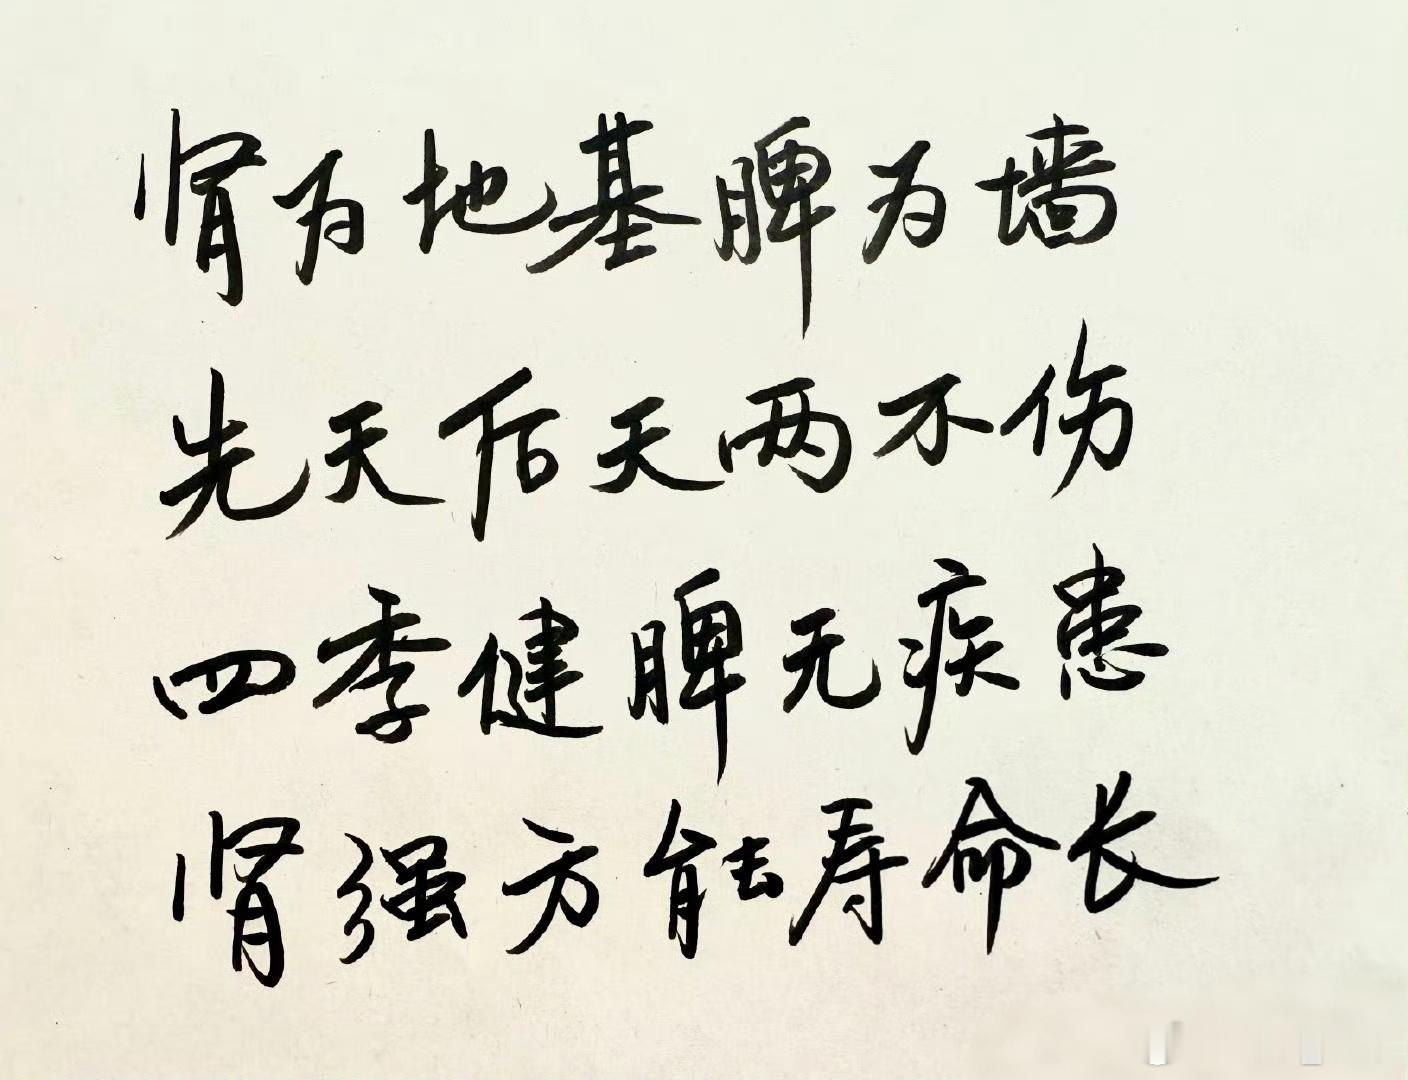 肾为地基脾为墙
先天后天两不伤
四季健脾无疾患
肾强方能寿命长